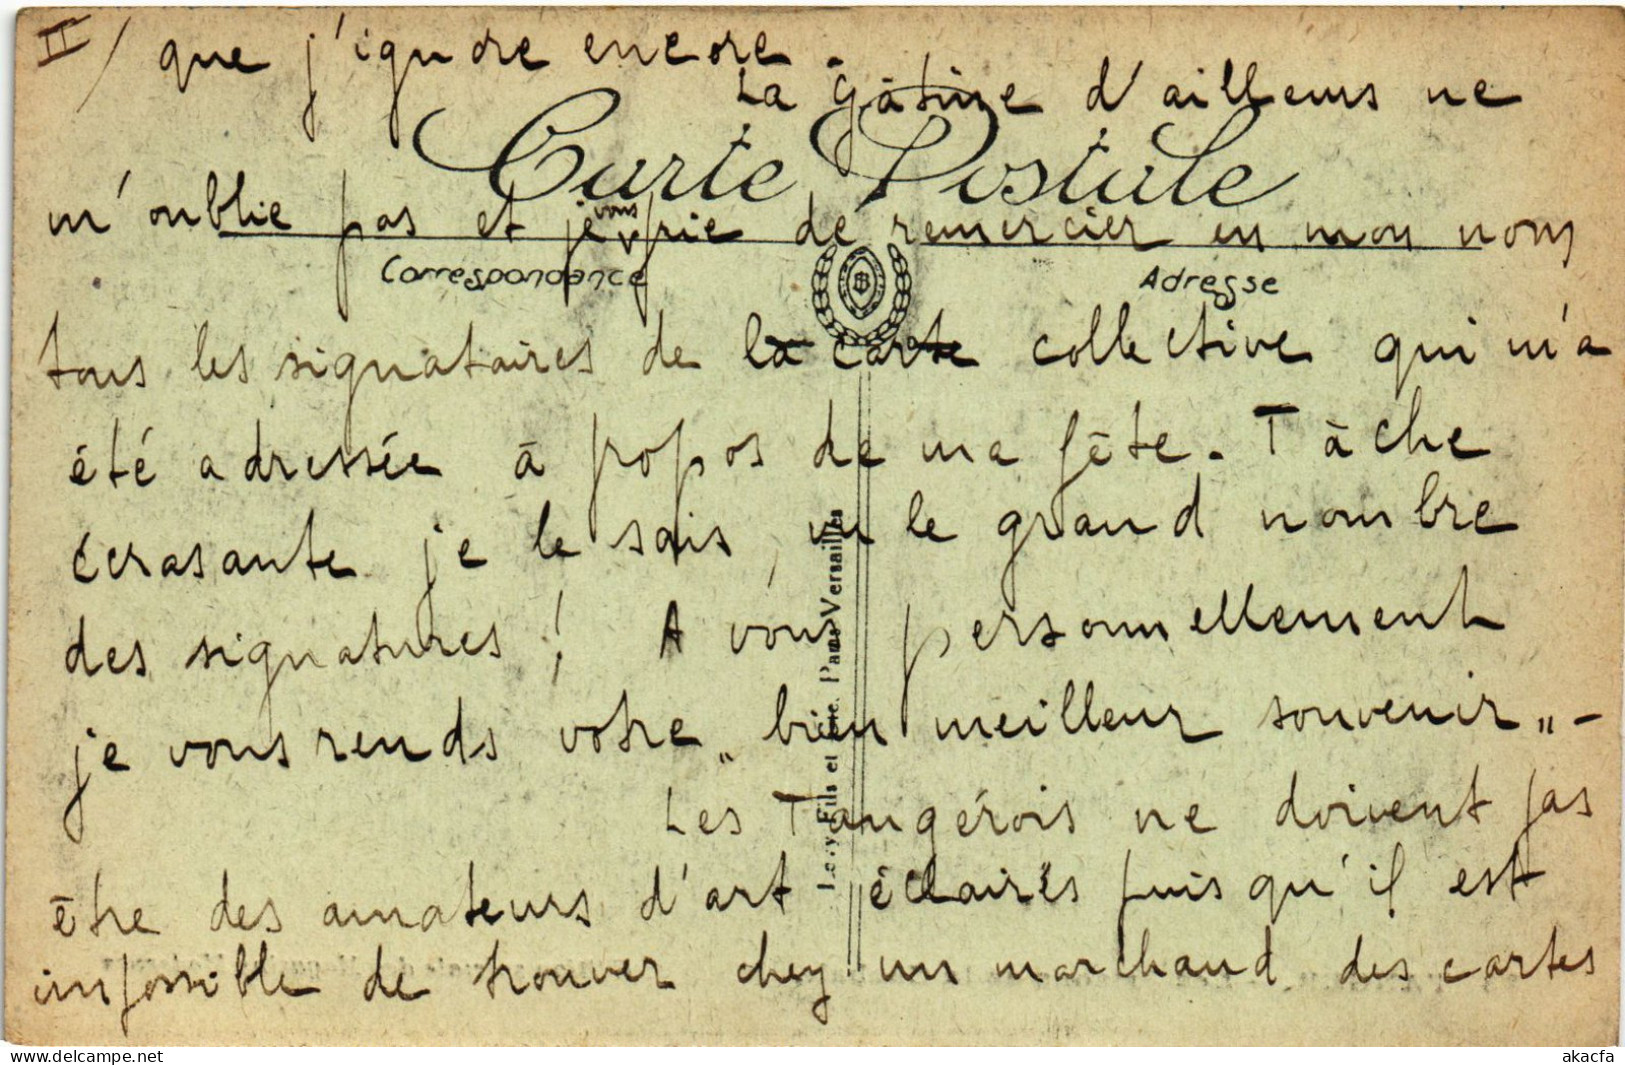 II/ que j'ignore encore.
La Gâtine d'ailleurs ne
Carte Postale
m'oublie pas et je vous prie de remercier en mon nom
Correspondance
Adresse
B
tous les signataires de la carte collective qui m'a
été adressée à propos de ma fête. Tâche
écrasante je le sais, vu le grand nombre
des signatures! A vous personnellement
je vous rends votre „bien meilleur souvenir„ -
Les Tangérois ne doivent pas
être des amateurs d'art éclairés puisqu'il est
impossible de trouver chez un marchand des cartes
Levy Fils et Cie. Paris Versailles
akacfa-delcampe.net
akacfa